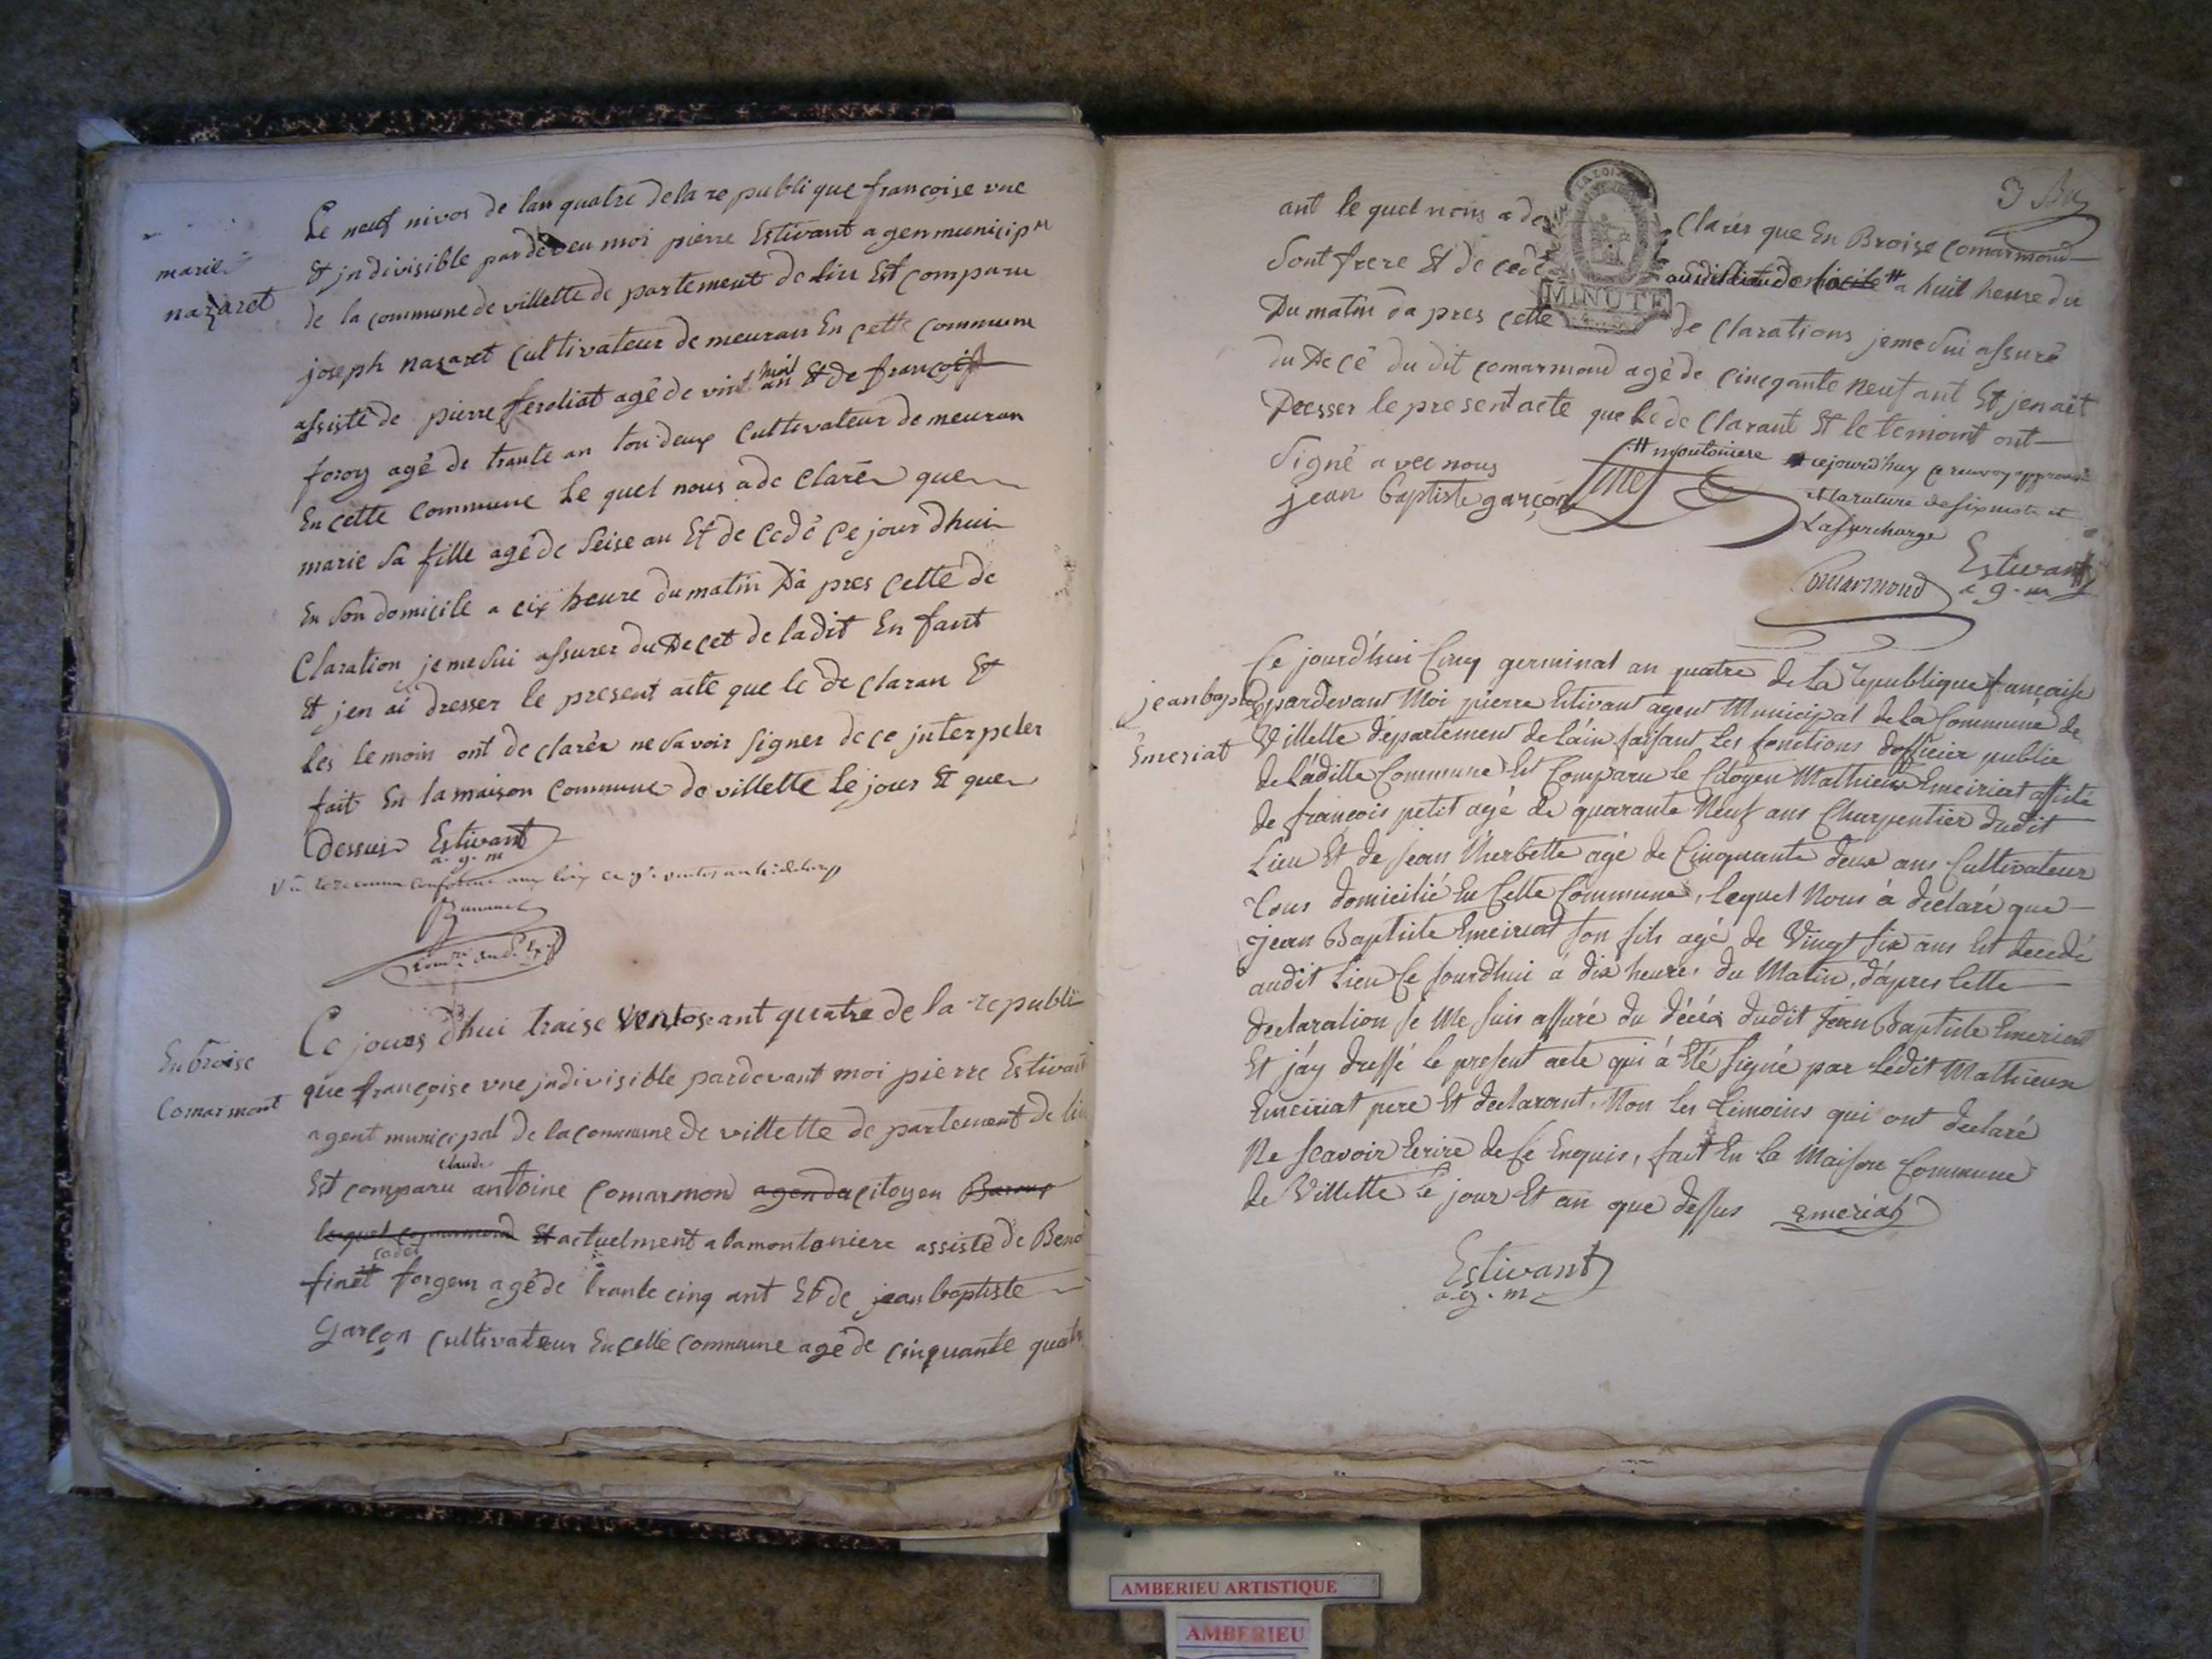 marie
nazaret
Le neuf nivos de lan quatre de la re publi que françoise une
Et jndivisible par deveu moi pierre Estivant agen municip
de la commune de villette de partement de lin Est comparu
joseph nazaret Cultivateur de meuran En cette commune
assisté de pierre feroliat agé de vint huit an Et de françois
foroy agé de trante an tou deux Cultivateur de meuran
En cette commune Le quel nous a de Clarér que
marie sa fille agé de seise an Et de cedé ce jour dhui
En son domicile a cix heure du matin Da pres cette de
Claration je me sui assurer du Decet de la dit En fant
Et jen ai dresser le present acte que le de claran Et
les temoin ont de clarér ne savoir signer de ce jnterpeler
fait En la maison Commune de villette Le jour Et que
Dessui Estivant
a. g. m
En broise
Comarmont
Ce jours dhui traise ventose ant quatre de la republi
que françoise une jndivisible pardevant moi pierre Estivant
agent municipal de la commune de villette de partement de lin
claude
Est comparu antoine Comarmond agen du citoyen
lequel comarmond Et actuelment a la montoniere assisté de Beno
cadet
finet forgeur agé de trante cinq ant Et de jean baptiste
Garçon cultivateur En cette commune agé de cinquante quatr
ant le quel nous a de Clarér que En Broise Comarmond
LA LOI
MINUTE
Sont frere Et de cedé a huit heure du
Du matin da pres cette de clarations je me sui assuré
du Decé du dit comarmond agé de cincgante neuf ant Et jen ait
Dresser le present acte que le de Clarant Et le temoint ont
Signé a vec nous
jean baptiste garçon
# montoniere cejourd'huy ce renvoy approuvé
et la rature de six mots et
La surcharge
Estivant
a g. m
Comarmond
jean bapte
Emeriat
Ce jourd'hui Cinq germinal an quatre de la republique française
pardevant Moi pierre Estivant agent Municipal de la Commune de
Villette departement de l'ain faisant les fonctions d'officier public
de laditte Commune Est Comparu le Citoyen Mathieux Emeiriat assisté
de françois petit agé de quarante Neuf ans Charpentier dudit
Lieu Et de Jean Vherbette agé de Cinquante deux ans Cultivateur
Tous domicilié En Cette Commune, lequel Nous à declaré que
Jean Baptiste Emeiriat son fils agé de Vingt six ans Est decedé
audit Lieu Ce jourdhui à dix heures du Matin, d'apres Cette
declaration je Me suis assuré du décéd dudit Jean Baptiste Emeriat
Et j'ay dressé le present acte qui à Eté signé par ledit Mathieux
Emeiriat pere Et declarant, Non les temoins qui ont declaré
Ne scavoir Ecrire de Ce Enquis, fait En la Maison Commune
de Villette le jour Et an que dessus emeriat
Estivant
a. g. m
AMBERIEU ARTISTIQUE
AMBERIEU